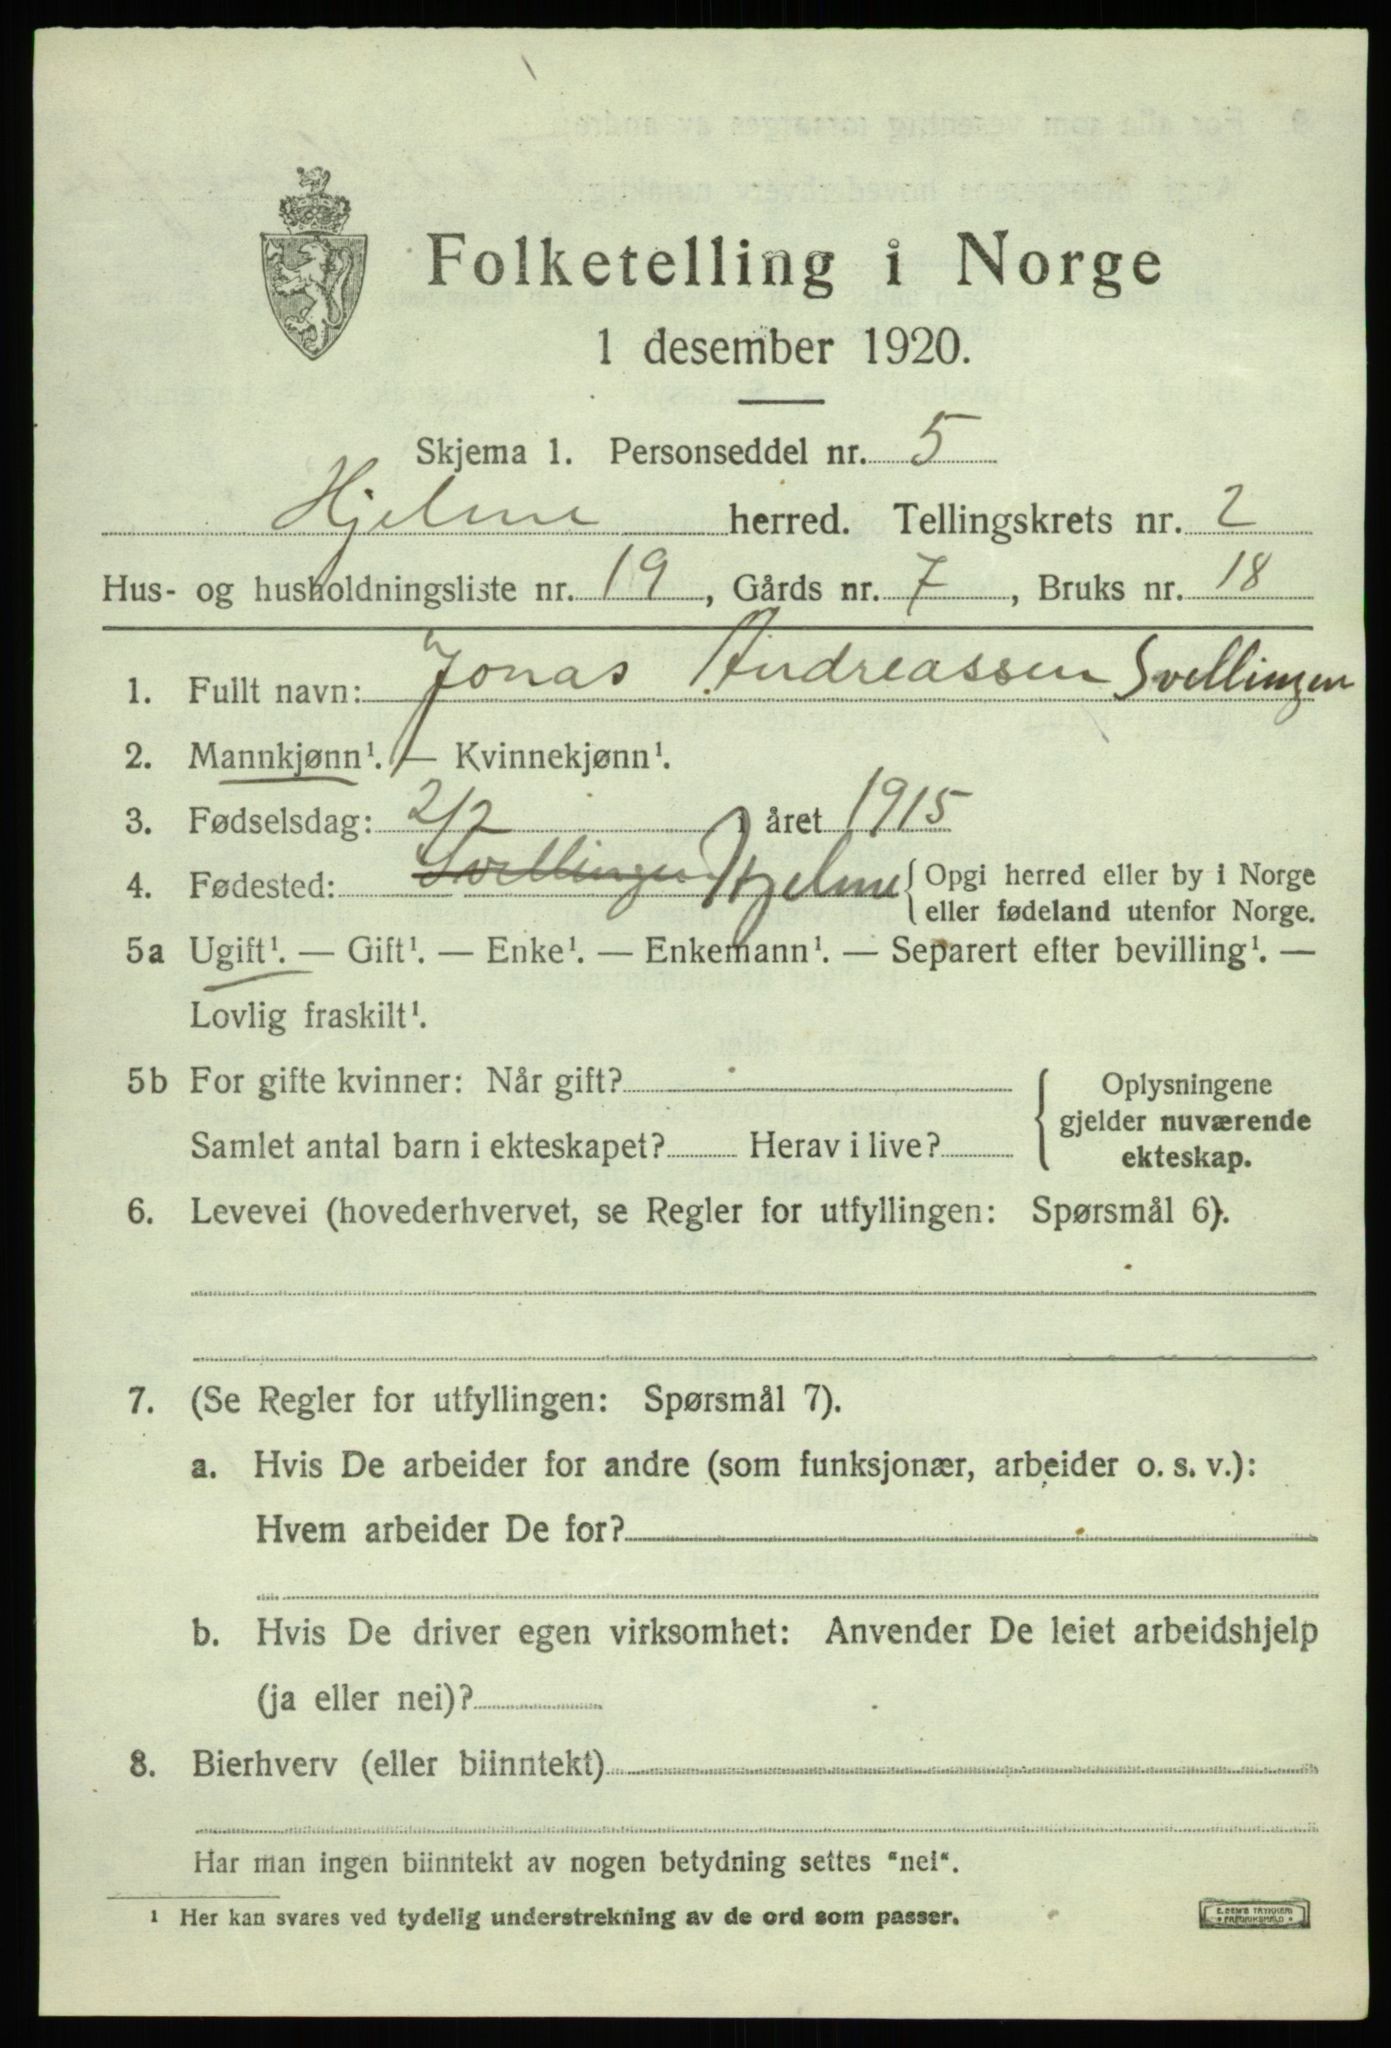 Folketelling i Norge
1 desember 1920.
Skjema 1. Personseddel nr. 5
Hjelme herred. Tellingskrets nr. 2
Hus- og husholdningsliste nr. 19, Gårds nr. 7, Bruks nr. 18
1. Fullt navn: Jonas Andreassen Svellingen
2. Mannkjønn¹. — Kvinnekjønn¹.
3. Fødselsdag: 2/2 i året 1915
4. Fødested: Svellingen Hjelme { Opgi herred eller by i Norge
eller fødeland utenfor Norge.
5a Ugift¹. — Gift¹. — Enke¹. — Enkemann¹. — Separert efter bevilling¹. —
Lovlig fraskilt¹.
5b For gifte kvinner: Når gift?
Samlet antal barn i ekteskapet? Herav i live?
{ Oplysningene
gjelder nuværende
ekteskap.
6. Levevei (hovederhvervet, se Regler for utfyllingen: Spørsmål 6).
7. (Se Regler for utfyllingen: Spørsmål 7).
a. Hvis De arbeider for andre (som funksjonær, arbeider o. s. v.):
Hvem arbeider De for?
b. Hvis De driver egen virksomhet: Anvender De leiet arbeidshjelp
(ja eller nei)?
8. Bierhverv (eller biinntekt)
Har man ingen biinntekt av nogen betydning settes "nei".
1 Her kan svares ved tydelig understrekning av de ord som passer.
E. SEM'S TRYKKERI
FREDRIKSHALD